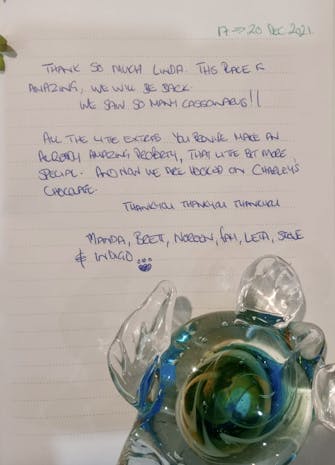 17 → 20 DEC 2021.
THANK SO MUCH LINDA. THIS PLACE IS
AMAZING, WE WILL BE BACK.
WE SAW SO MANY CASSOWARIES!!
ALL THE LITTLE EXTRAS YOU PROVIDE MAKE AN
ALREADY AMAZING PROPERTY, THAT LITTLE BIT MORE
SPECIAL. AND NOW WE ARE HOOKED ON CHARLEY'S
CHOCOLATE.
THANKYOU THANKYOU THANKYOU
MANDA, BRETT, NORDON, LETA, STEVE
& INDIGO